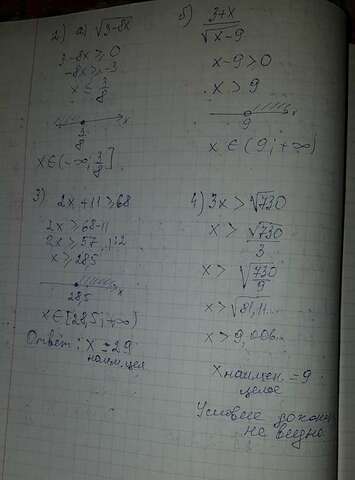 2) а) √3-8x
3-8x ≥ 0
-8x ≥ -3
x ≤ 3/8
3/8 x
x∈(-∞; 3/8]
б) 3+x/√x-9
x-9 > 0
x > 9
9 x
x ∈ (9; +∞)
3) 2x+11 ≥ 68
2x ≥ 68-11
2x ≥ 57 |:2
x ≥ 28,5
28,5 x
x∈[28,5; +∞)
Ответ: x = 29
наим.цел
4) 3x > √730
x > √730/3
x > √730/9
x > √81,11...
x > 9,006...
x наимен. = 9
целое
Условие до конца
не видно